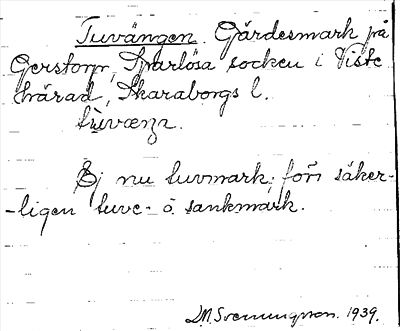 Tuvängen. Gärdesmark på
Gerstorp, Sparlösa socken i Viste
härad, Skaraborgs l.
tùvæŋn.
Ej nu tuvmark; förr säker-
-ligen tuve- o. sankmark.
D.N. Svenningsson. 1939.